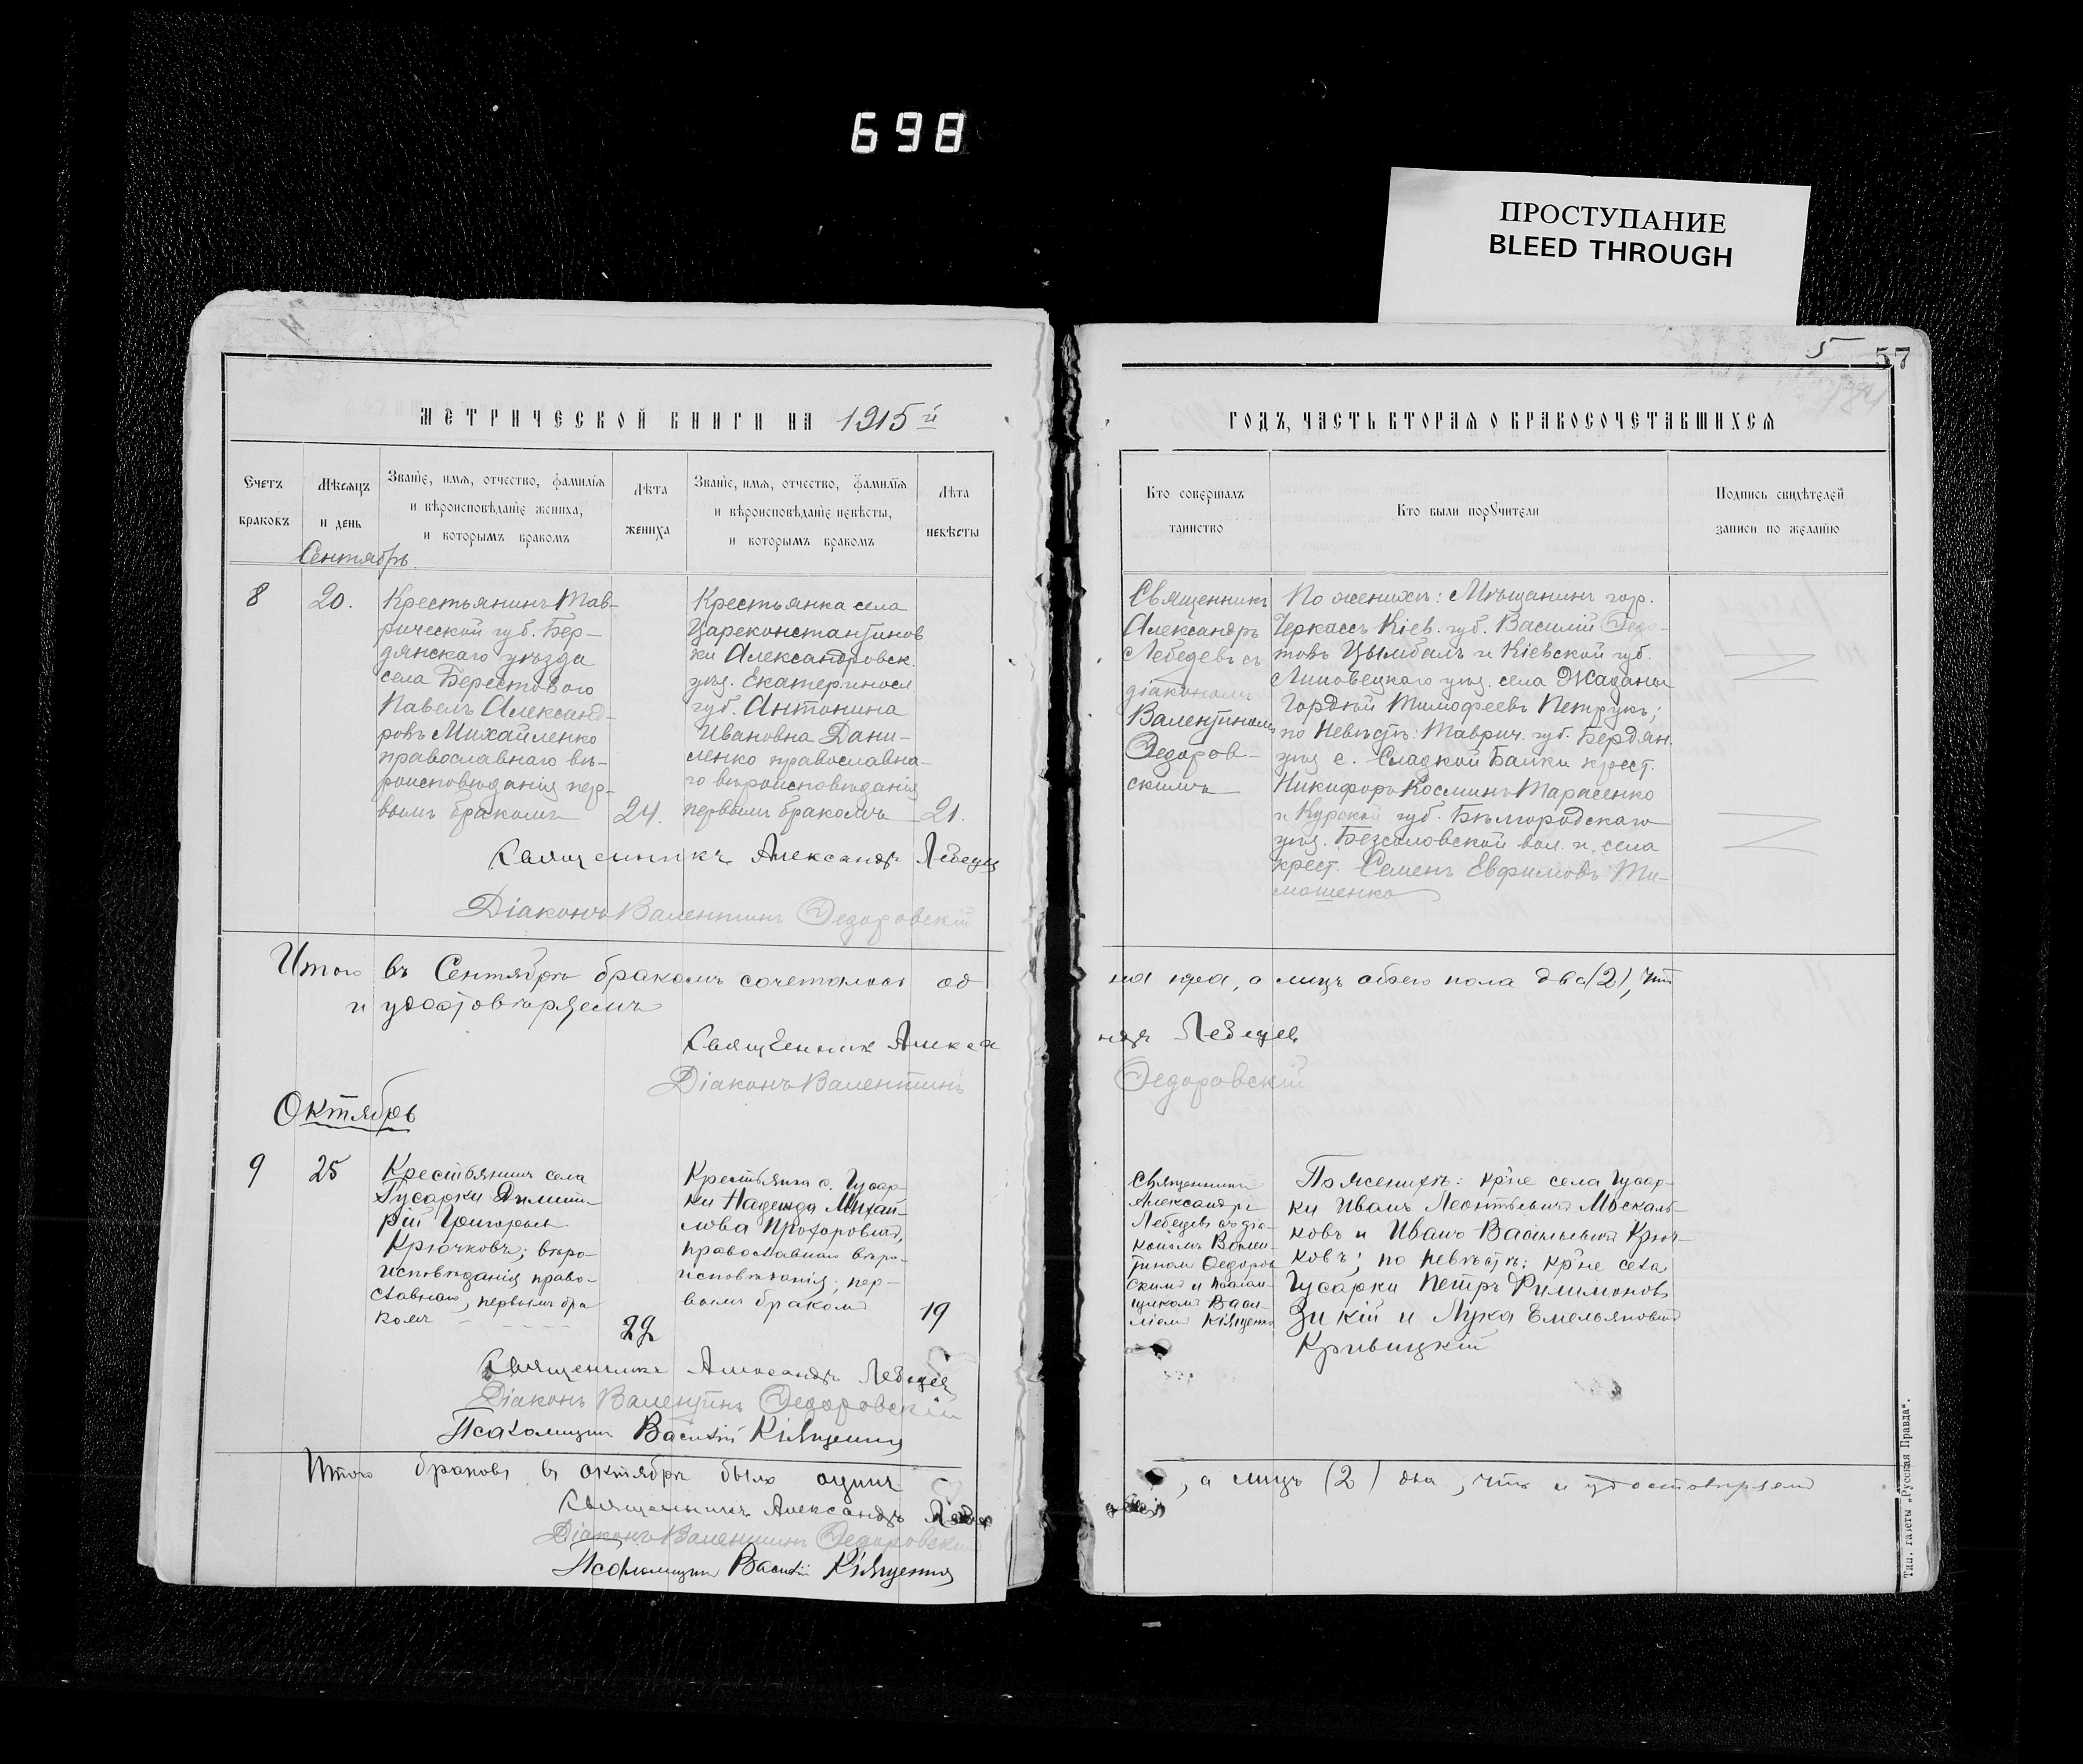 698
ПРОСТУПАНИЕ
BLEED THROUGH
5
57
МЕТРИЧЕСКОЙ КНИГИ НА 1915 й
ГОДЪ, ЧАСТЬ ВТОРАЯ О БРАКОСОЧЕТАВШИХСЯ
Счетъ
браковъ
Мѣсяцъ
и день
Званіе, имя, отчество, фамилія
и вѣроисповѣданіе жениха,
и которымъ бракомъ
Лѣта
жениха
Званіе, имя, отчество, фамилія
и вѣроисповѣданіе невѣсты,
и которымъ бракомъ
Лѣта
невѣсты
Кто совершалъ
таинство
Кто были поручители
Подпись свидѣтелей
записи по желанію
Сентябрь.
8
20.
Крестьянинъ Тав-
рической губ. Бер-
дянскаго уѣзда
села Берестового
Павелъ Александ-
ровъ Михайленко
православнаго вѣ-
роисповѣданія пер-
вымъ бракомъ
24.
Крестьянка села
Цареконстантинов
ки Александровск.
уѣз. Екатеринос.
губ. Антонина
Ивановна Дани-
ленко православна-
го вѣроисповѣданія
первымъ бракомъ
21.
Священникъ
Александръ
Лебедевъ съ
діакономъ
Валентиномъ
Ѳедоров-
скимъ
По женихѣ: Мѣщанинъ гор.
Черкассъ Кіев. губ. Василій Ѳедо-
товъ Цымбалъ и Кіевской губ.
Липовецкаго уѣз. села Жаданы
Гордѣй Тимофеевъ Петрукъ;
по Невѣстѣ: Таврич. губ. Бердян.
уѣз с. Сладкой Балки крест.
Никифоръ Косминъ Тарасенко
и Курской губ. Бѣлгородскаго
уѣз. Безсоловской вол. и села
крест. Семенъ Евфимовъ Ти-
мошенко
Священникъ Александръ Лебедев
Діаконъ Валентинъ Ѳедоровскій
Итого въ Сентябрѣ бракомъ сочеталось од
на пара, а лицъ обоего пола два (2), что
и удостовѣряемъ
Священник Алекса
ндръ Лебедев
Діаконъ Валентинъ
Ѳедоровскій
Октябрь
9
25
Крестьянинъ села
Гусарки Димит-
рій Григорьев
Крючковъ; вѣро-
исповѣданія право-
славнаго, первымъ бра
комъ
22
Крестьянка с. Гусар-
ки Надежда Михай-
лова Прохоровна,
православнаго вѣро-
исповѣданія; пер-
вымъ бракомъ
19
Священникъ
Александръ
Лебедевъ съ діа-
кономъ Вален-
тиномъ Ѳедоров
скимъ и псалом-
щикомъ Васи-
ліемъ Кіященко
По женихѣ: кр-не села Гусар-
ки Иванъ Леонтьевичъ Москаль-
ковъ и Иванъ Васильевичъ Крюч-
ковъ; по невѣстѣ: кр-не села
Гусарки Петръ Филимоновъ
Зикій и Лука Емельяновичъ
Кривицкій
Священникъ Александръ Лебедев
Діаконъ Валентинъ Ѳедоровскій
Псаломщикъ Василій Кіященко
Итого браковъ въ октябрѣ было одинъ
, а лицъ (2) два, что и удостовѣряемъ
Священникъ Александръ
Діаконъ Валентинъ Ѳедоровскій
Псаломщикъ Василій Кіященко
Тип. газеты „Русская Правда“.